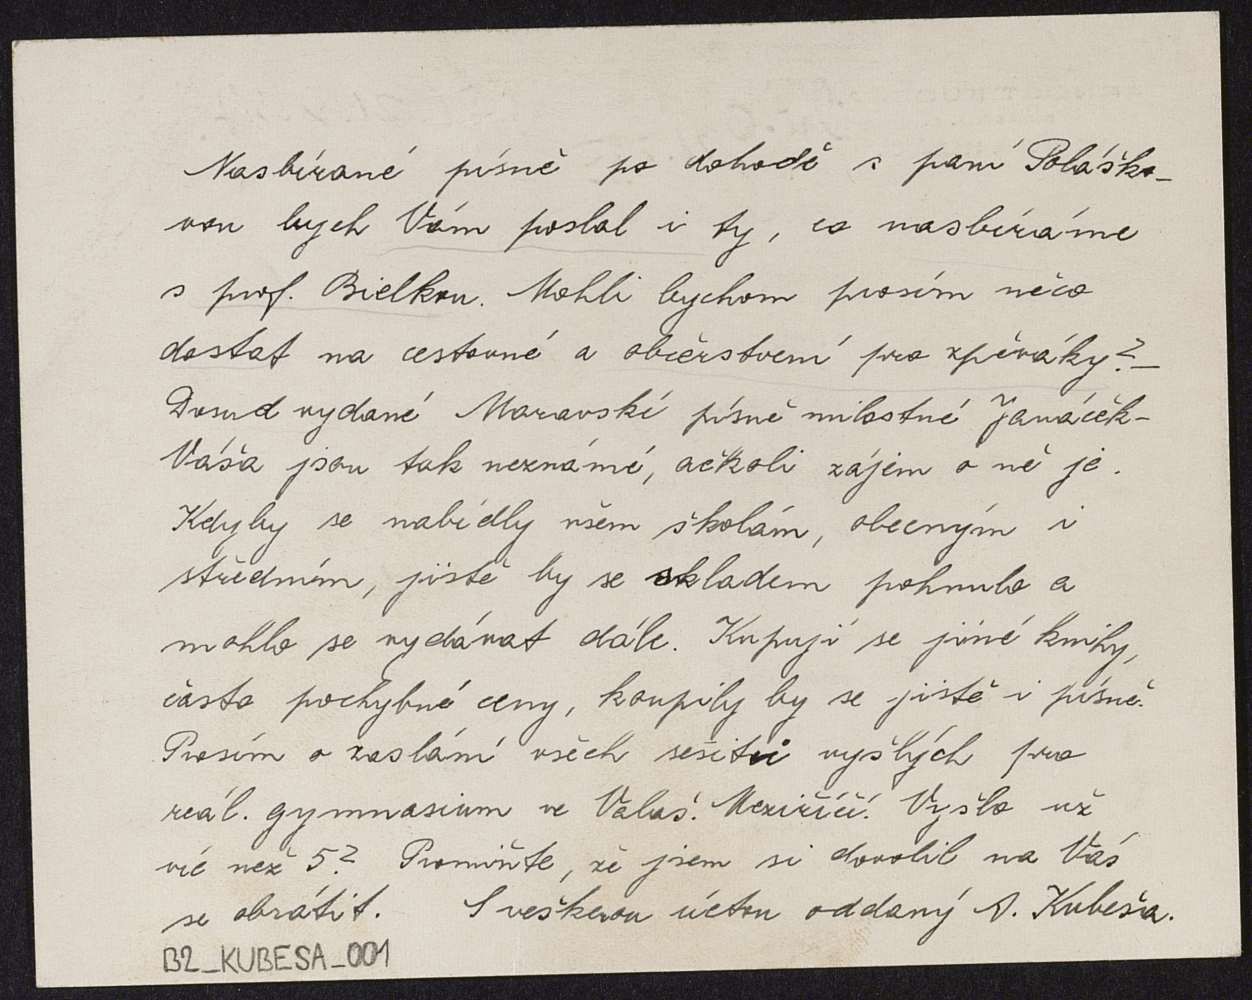 Nasbírané písně po dohodě s paní Poláško-
vou bych Vám poslal i ty, co nasbíráme
s prof. Bielkou. Mohli bychom prosím něco
dostat na cestovné a občerstvení pro zpěváky? –
Dosud vydané Moravské písně milostné Janáček-
Váša jsou tak neznámé, ačkoli zájem o ně je.
Kdyby se nabídly všem školám, obecným i
středním, jistě by se skladem pohnulo a
mohlo se vydávat dále. Kupují se jiné knihy,
často pochybné ceny, koupily by se jistě i písně.
Prosím o zaslání všech sešitů vyšlých pro
reál. gymnasium ve Valaš. Meziříčí. Vyšlo už
víc než 5? Promiňte, že jsem si dovolil na Vás
se obrátit. S veškerou úctou oddaný A. Kubeša.
B2_KUBESA_001